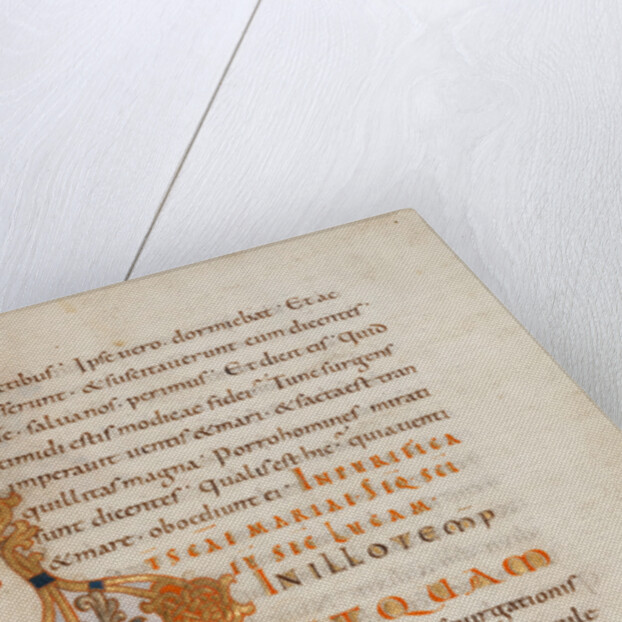 ctibuſ · Ipſe uero · dormiebat · Et ac
ſerunt · & ſuſcitauerunt eum dicenteſ ·
ſaluanoſ · perimuſ · Et dicit eiſ · Quid
timidi eſtiſ modicae fidei · Tunc ſurgenſ
imperauit uentiſ & mari · & facta eſt tran
quillitaſ magna · Porro homineſ mirati
ſunt dicenteſ · Qualiſ eſt hic · quia uenti
& mare · oboediunt ei · IN PURIFICA
TSCAE MARIAE
SEC LUCAM
IN ILLO TEMP
TQUAM
purgationiſ